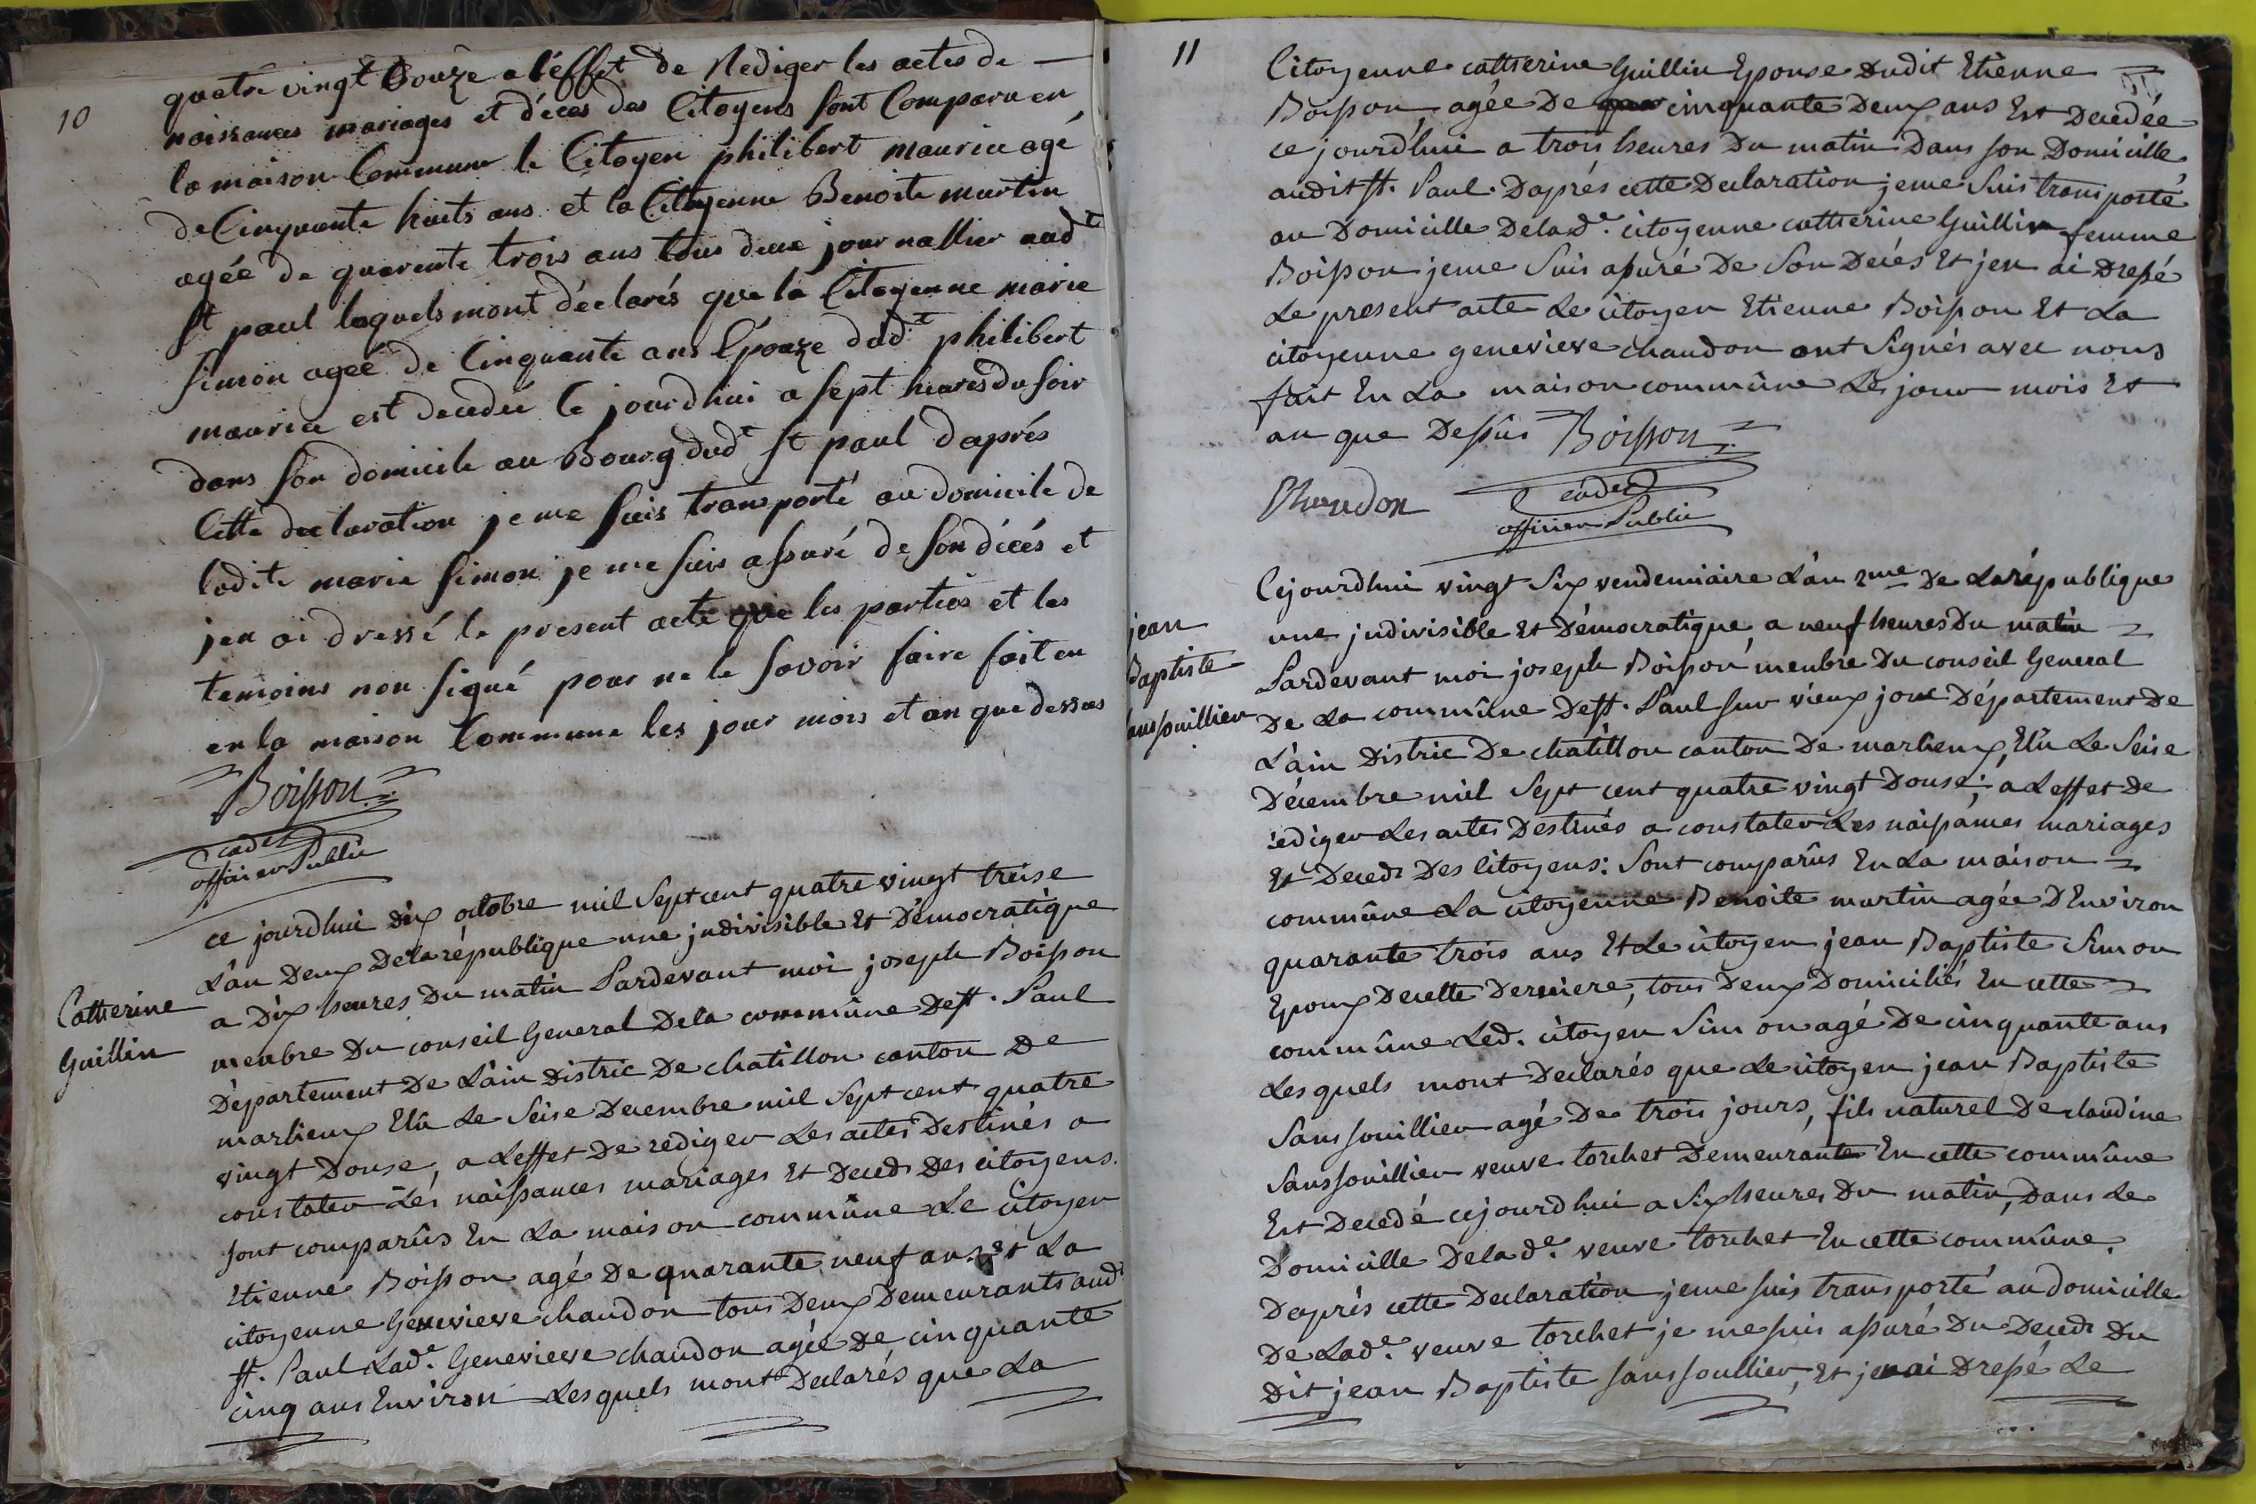 10
quatre vingt douze a l'effet de Rediger les actes de
naissances mariages et décès des Citoyens sont Comparu en
la maison Commune le Citoyen philibert maurice agé
de Cinquante huits ans et la Citoyenne Benoite martin
agée de quarente trois ans tous deux journallier aud.t
St paul lequels mont déclarés que la Citoyenne marie
simon agée de Cinquante ans Épouze dud.t philibert
maurice est decedée Ce jourdhui a sept heures du soir
dans son domicile au Bourg dud.t St paul daprés
Cette declaration je me suis transporté au domicile de
ladite marie simon je me suis assuré de son décés et
jen ai dressé le present acte que les parties et les
temoins non signé pour ne le savoir faire fait en
en la maison Commune les jour mois et an que dessus
Boisson
cadet
officier Public
Catherine
Guillin
ce jourdhui dix octobre mil sept cent quatre vingt treise
L'an Deux De la république une indivisible Et Démocratique
a Dix heures Du matin Pardevant moi joseph Boisson
menbre Du conseil General De la commûne De st. Paul
Département De L'ain Distric De chatillon canton De
marlieux Elû Le seise Decembre mil sept cent quatre
vingt Douse, a Leffet De rediger Les actes Destinés a
constater Les naissances mariages Et Deceds Des citoyens.
sont comparûs En La maison commûne Le citoyen
Etienne Boisson agé De quarante neuf ans Et La
citoyenne Genevieve chaudon tous Deux Demeurants aud.t
st. Paul Lad.e Genevieve chaudon agée De cinquante
cinq ans Environ Lesquels mont Declarés que La
11
Citoyenne catherine Guillin Epouse Dudit Etienne
Boisson, agée De cinquante Deux ans Est Decedée
ce jourd'hui a trois heures Du matin Dans son Domicille
audit st. Paul. Daprés cette Declaration je me suis transporté
au Domicille De lad.e citoyenne catherine Guillin femme
Boisson je me suis assuré De son Decés Et jen ai Dressé
Le present acte Le citoyen Etienne Boisson Et La
citoyenne genevieve chaudon ont signés avec nous
fait En La maison commûne Les jour mois Et
an que Dessus Boisson
Chaudon
cadet
officier Public
jean
Baptiste
Cejourdhui vingt six vendemiaire L'an 2me De La république
une indivisible Et Démocratique a neuf heures Du matin
Pardevant moi joseph Boisson menbre Du conseil General
De La commûne De st. Paul sur vieux jonc Département De
L'ain Distric De chatillon canton De marlieux, Elû Le seise
Décembre mil sept cent quatre vingt Douse; a Leffet De
rediger Les actes Destinés a constater Les naissances mariages
Et Deceds Des citoyens: sont comparûs En La maison
commûne La citoyenne Benoite martin agée D'Environ
quarante trois ans Et Le citoyen jean Baptiste simon
Epoux De cette Derniere, tous Deux Domiciliés En cette
commûne Led. citoyen simon agé De cinquante ans
Lesquels mont Declarés que Le citoyen jean Baptiste
sanssouillier agé De trois jours, fils naturel De claudine
sanssouillier veuve torchet Demeurante En cette commûne
Est Decedé cejourdhui a six heures Du matin, Dans Le
Domicille De lad.e veuve torchet En cette commûne.
Daprés cette Declaration je me suis transporté au domicille
De Lad.e veuve torchet je me suis assuré Du Deceds Du
Dit jean Baptiste sanssoullier, Et jen ai Dressé Le